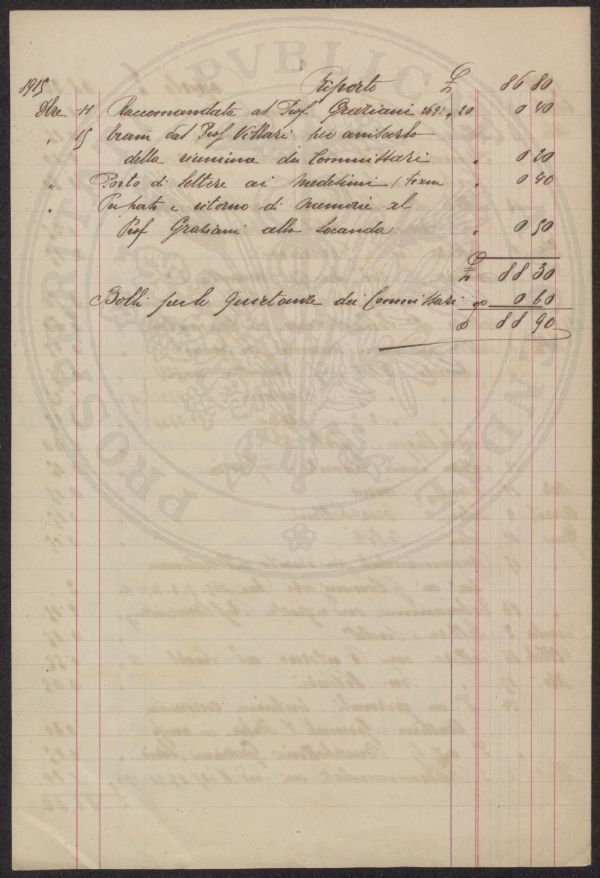 1915 Riporto £ 86 80
Dbre 11 Raccomandata al Prof Graziani " 20 0 40
" 15 tram dal Prof Villari per avvisarlo
della riunione dei Commissari " 0 20
" Porto di lettere ai medesimi / tram " 0 40
" Per porto e ritorno di memorie al
Prof Graziani alla locanda " 0 50
£ 88 30
Bolli per le quietanze dei Commissari 0 60
88 90
PVBLICAE
PROSPERITATI